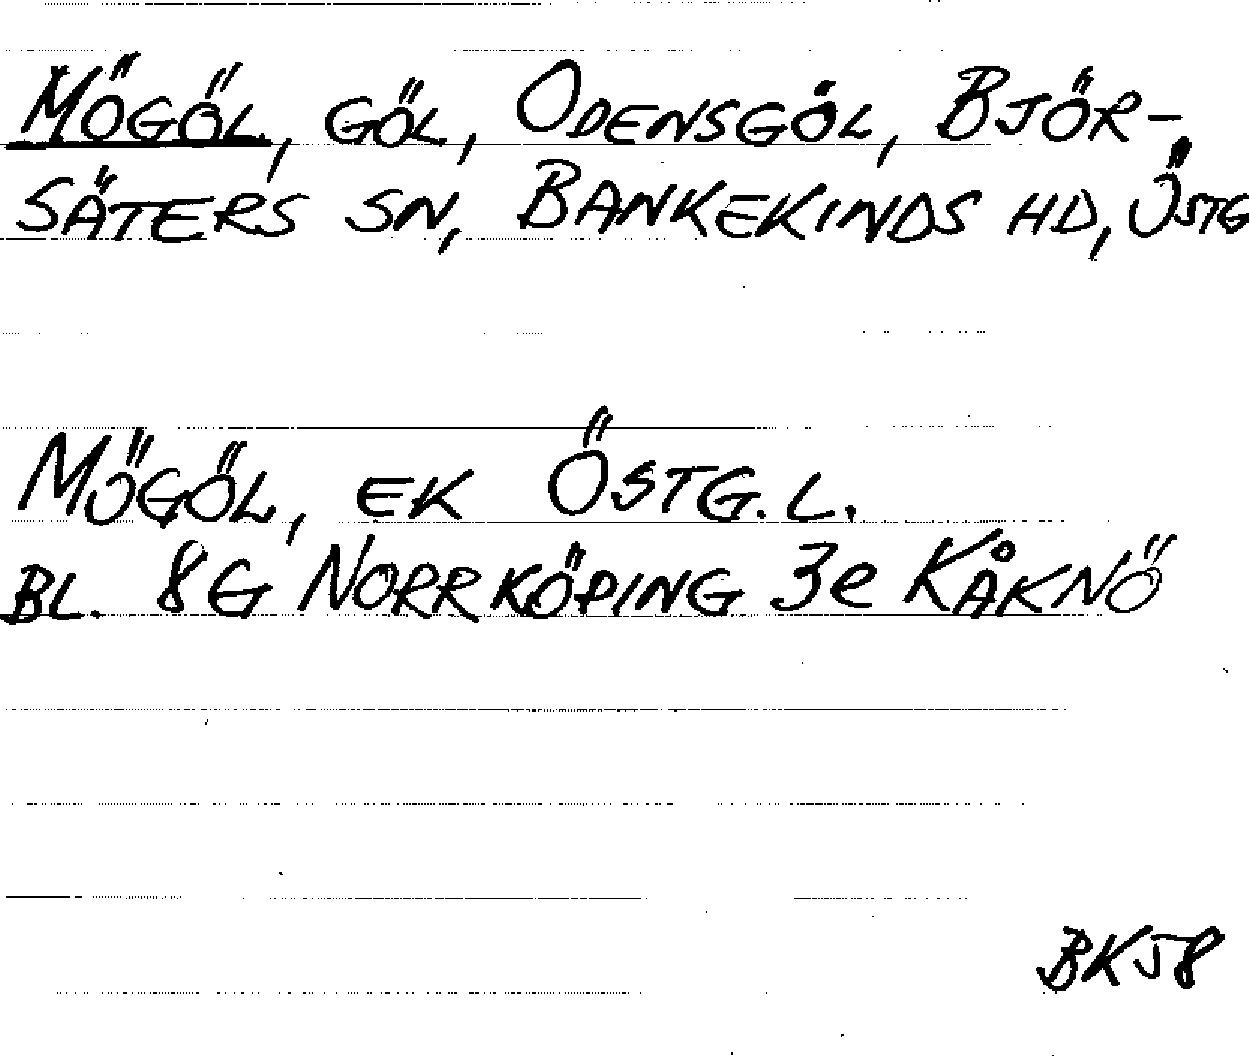 MÖGÖL, GÖL, ODENSGÖL, BJÖR-
SÄTERS SN, BANKEKINDS HD, ÖSTG
MÖGÖL, EK ÖSTG. L.
BL. 8G NORRKÖPING 3e KÅKNÖ
BK58